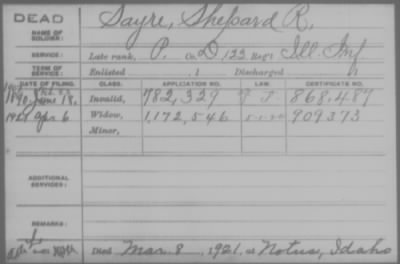 DEAD
NAME OF SOLDIER:
Sayre, Shepard R.
SERVICE:
Late rank, P. Co. D, 123 Reg't Ill. Inf
TERM OF SERVICE:
Enlisted , 1 Discharged
DATE OF FILING. CLASS. APPLICATION NO. LAW. CERTIFICATE NO.
1890 June 18, Invalid, 782,329 868,487
1921 Apr 6 Widow, 1,172,546 909373
Minor,
ADDITIONAL SERVICES:
REMARKS:
Died Mar. 8, 1921, at Notus, Idaho